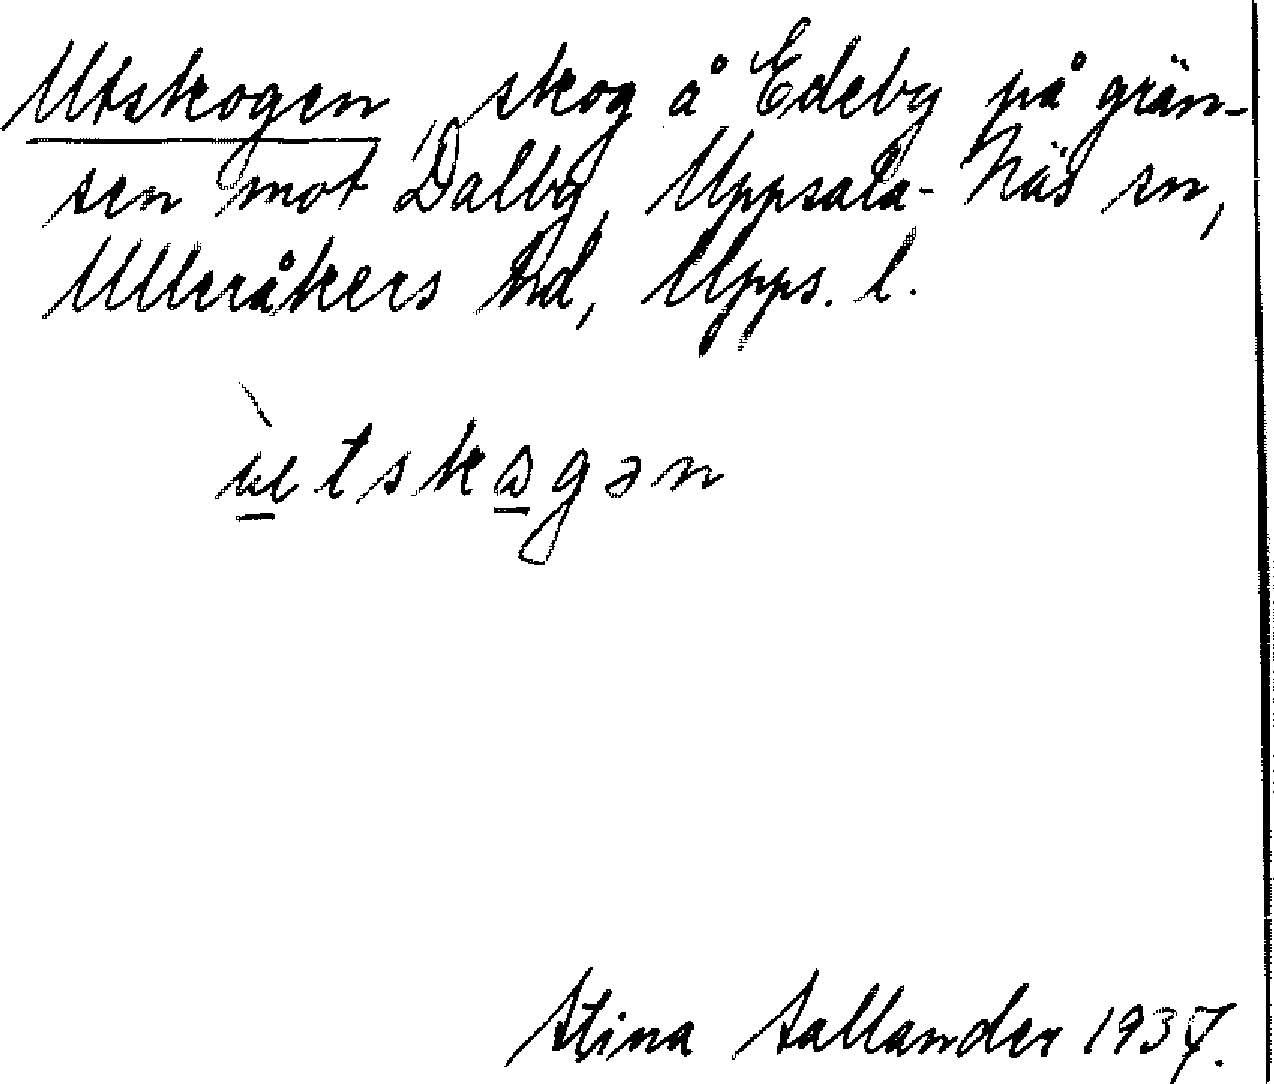 Utskogen, skog å Edeby på grän-
sen mot Dalby, Uppsala-Näs sn,
Ulleråkers hd, Upps. l.
ùtskɷgən
Stina Sallander 1937.